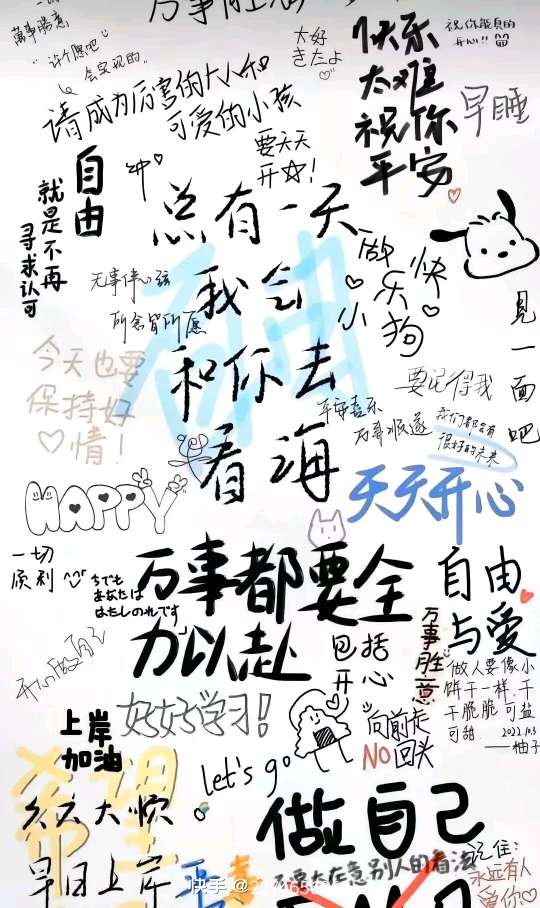 万事胜意
萬事勝意
"许个愿吧"
会实现的
请成为厉害的大人和
可爱的小孩
太好
きたよ
快乐
太难
祝你
平安
祝你能真的
开心!!
早睡
要天天
开☆!
自由
就是不再
寻求认可
冲
总有一天
我会
和你去
看海
自由
无事伴心弦
所念皆所愿
做快
乐
小狗
见一面吧
今天也要
保持好
♡情!
要记得我
平安喜乐
万事顺遂
我们都会有
很好的未来
天天开心
HAPPY
一切
顺利
万事都要全
力以赴
包括
开心
自由
与爱
万事胜意
开心做自己
好好学习!
上岸
加油
向前走
NO回头
做人要像小
饼干一样,干
干脆脆,可盐
可甜.
2022.10.3
——柚子
let's go
希望
久久大顺
早日上岸
做自己
不要太在意别人的看法
记住:
永远有人
爱你♡
快手